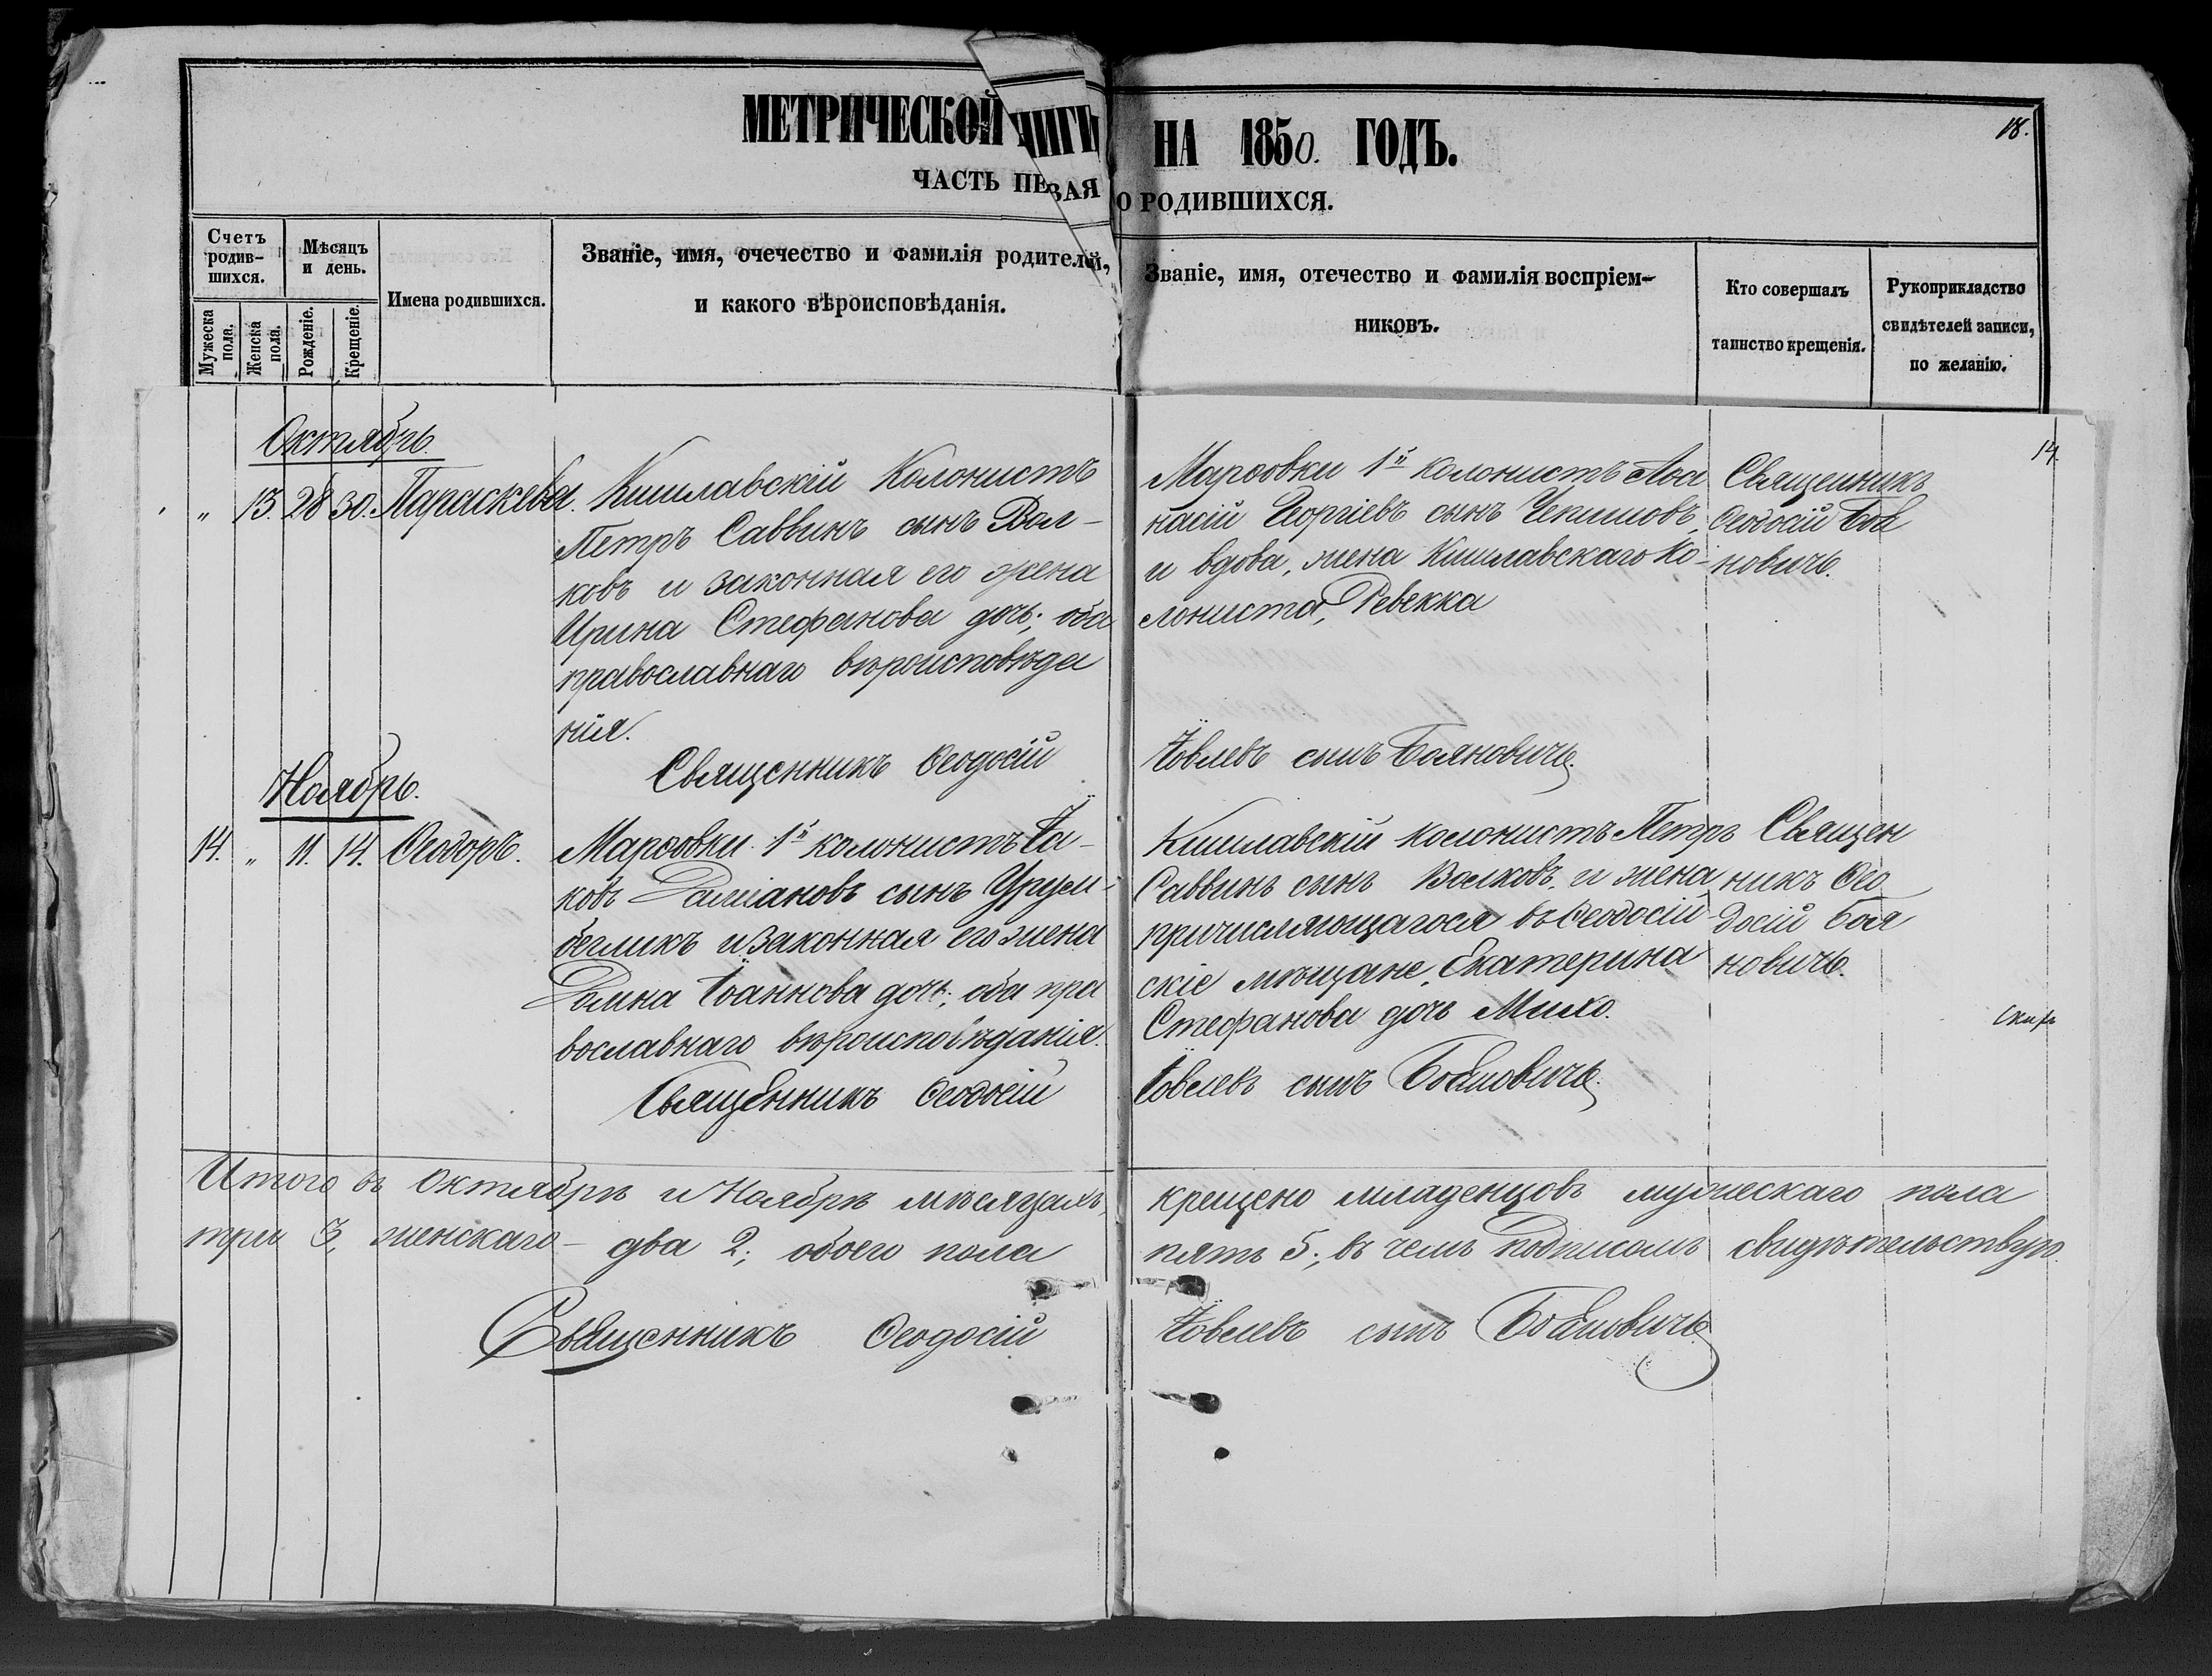 МЕТРИЧЕСКОЙ НИГИ НА 1850. ГОДЪ.
18.
ЧАСТЬ ПЕ ВАЯ О РОДИВШИХСЯ.
Счетъ родив-шихся.
Мужеска пола.
Женска пола.
Мѣсяцъ и день.
Рожденіе.
Крещеніе.
Имена родившихся.
Званіе, имя, очечество и фамилія родителей,
и какого вѣроисповѣданія.
Званіе, имя, отечество и фамилія воспріем-
никовъ.
Кто совершалъ
таинство крещенія.
Рукоприкладство
свидѣтелей записи,
по желанію.
14.
Октябрь.
" 13. 28 30. Параскева.
Кишлавскій Колонистъ
Петръ Саввинъ сынъ Вол-
ковъ и законная его жена
Ирина Стефанова дочь; оба
православнаго вѣроисповѣда
нія.
Марѳовки 1й колонистъ Аѳа
насій Георгіевъ сынъ Чепишовъ,
и вдова, жена Кишлавскаго Ко-
лониста, Ревекка
Священникъ
Ѳеодосій Боя
новичь.
Священникъ Ѳеодосій Іовлевъ сынъ Бояновичь.
Ноябрь.
14. " 11. 14. Ѳеодоръ.
Марѳовки 1й колонистъ Іа-
ковъ Даміановъ сынъ Урум-
бегликъ и законная его жена
Домна Іоаннова дочь; оба пра
вославнаго вѣроисповѣданія.
Кишлавскій колонистъ Петръ
Саввинъ сынъ Волковъ, и жена
причисляющагося въ Ѳеодосій-
скіе мѣщане, Екатерина
Стефанова дочь Михо.
Священ
никъ Ѳео
досій Боя
новичь.
Скирь
Священникъ Ѳеодосій Іовлевъ сынъ Бояновичь.
Итого въ Октябрѣ и Ноябрѣ мѣсяцахъ, крещено младенцовъ мужескаго пола
три 3, женскаго – два 2; обоего пола пять 5; въ чемъ подписомъ свидѣтельствую.
Священникъ Ѳеодосій Іовлевъ сынъ Бояновичь